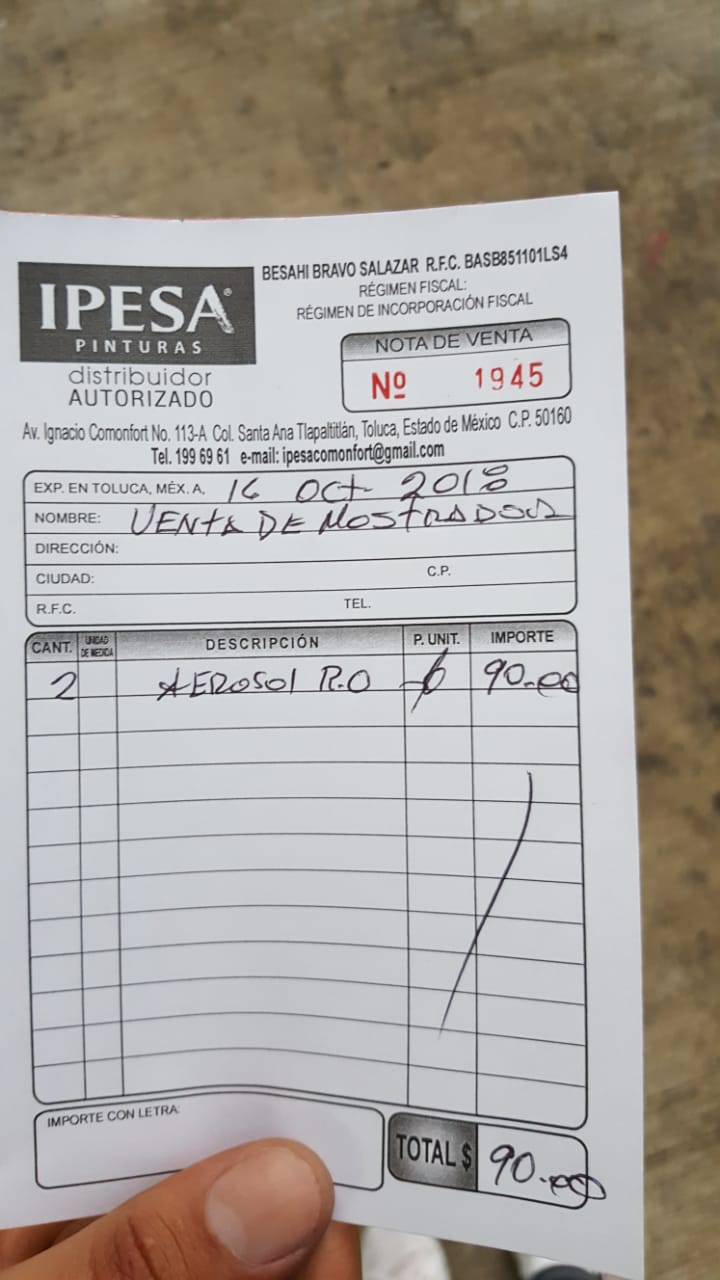 IPESA®
PINTURAS
distribuidor
AUTORIZADO
BESAHI BRAVO SALAZAR R.F.C. BASB851101LS4
RÉGIMEN FISCAL:
RÉGIMEN DE INCORPORACIÓN FISCAL
NOTA DE VENTA
Nº 1945
Av. Ignacio Comonfort No. 113-A Col. Santa Ana Tlapaltitlán, Toluca, Estado de México C.P. 50160
Tel. 199 69 61 e-mail: ipesacomonfort@gmail.com
EXP. EN TOLUCA, MÉX. A, 16 OCT 2018
NOMBRE: VENTA DE MOSTRADOR
DIRECCIÓN:
CIUDAD: C.P.
R.F.C. TEL.
CANT. UNIDAD DE MEDIDA DESCRIPCIÓN P. UNIT. IMPORTE
2 AEROSOL R.O 90.00
IMPORTE CON LETRA:
TOTAL $ 90.00